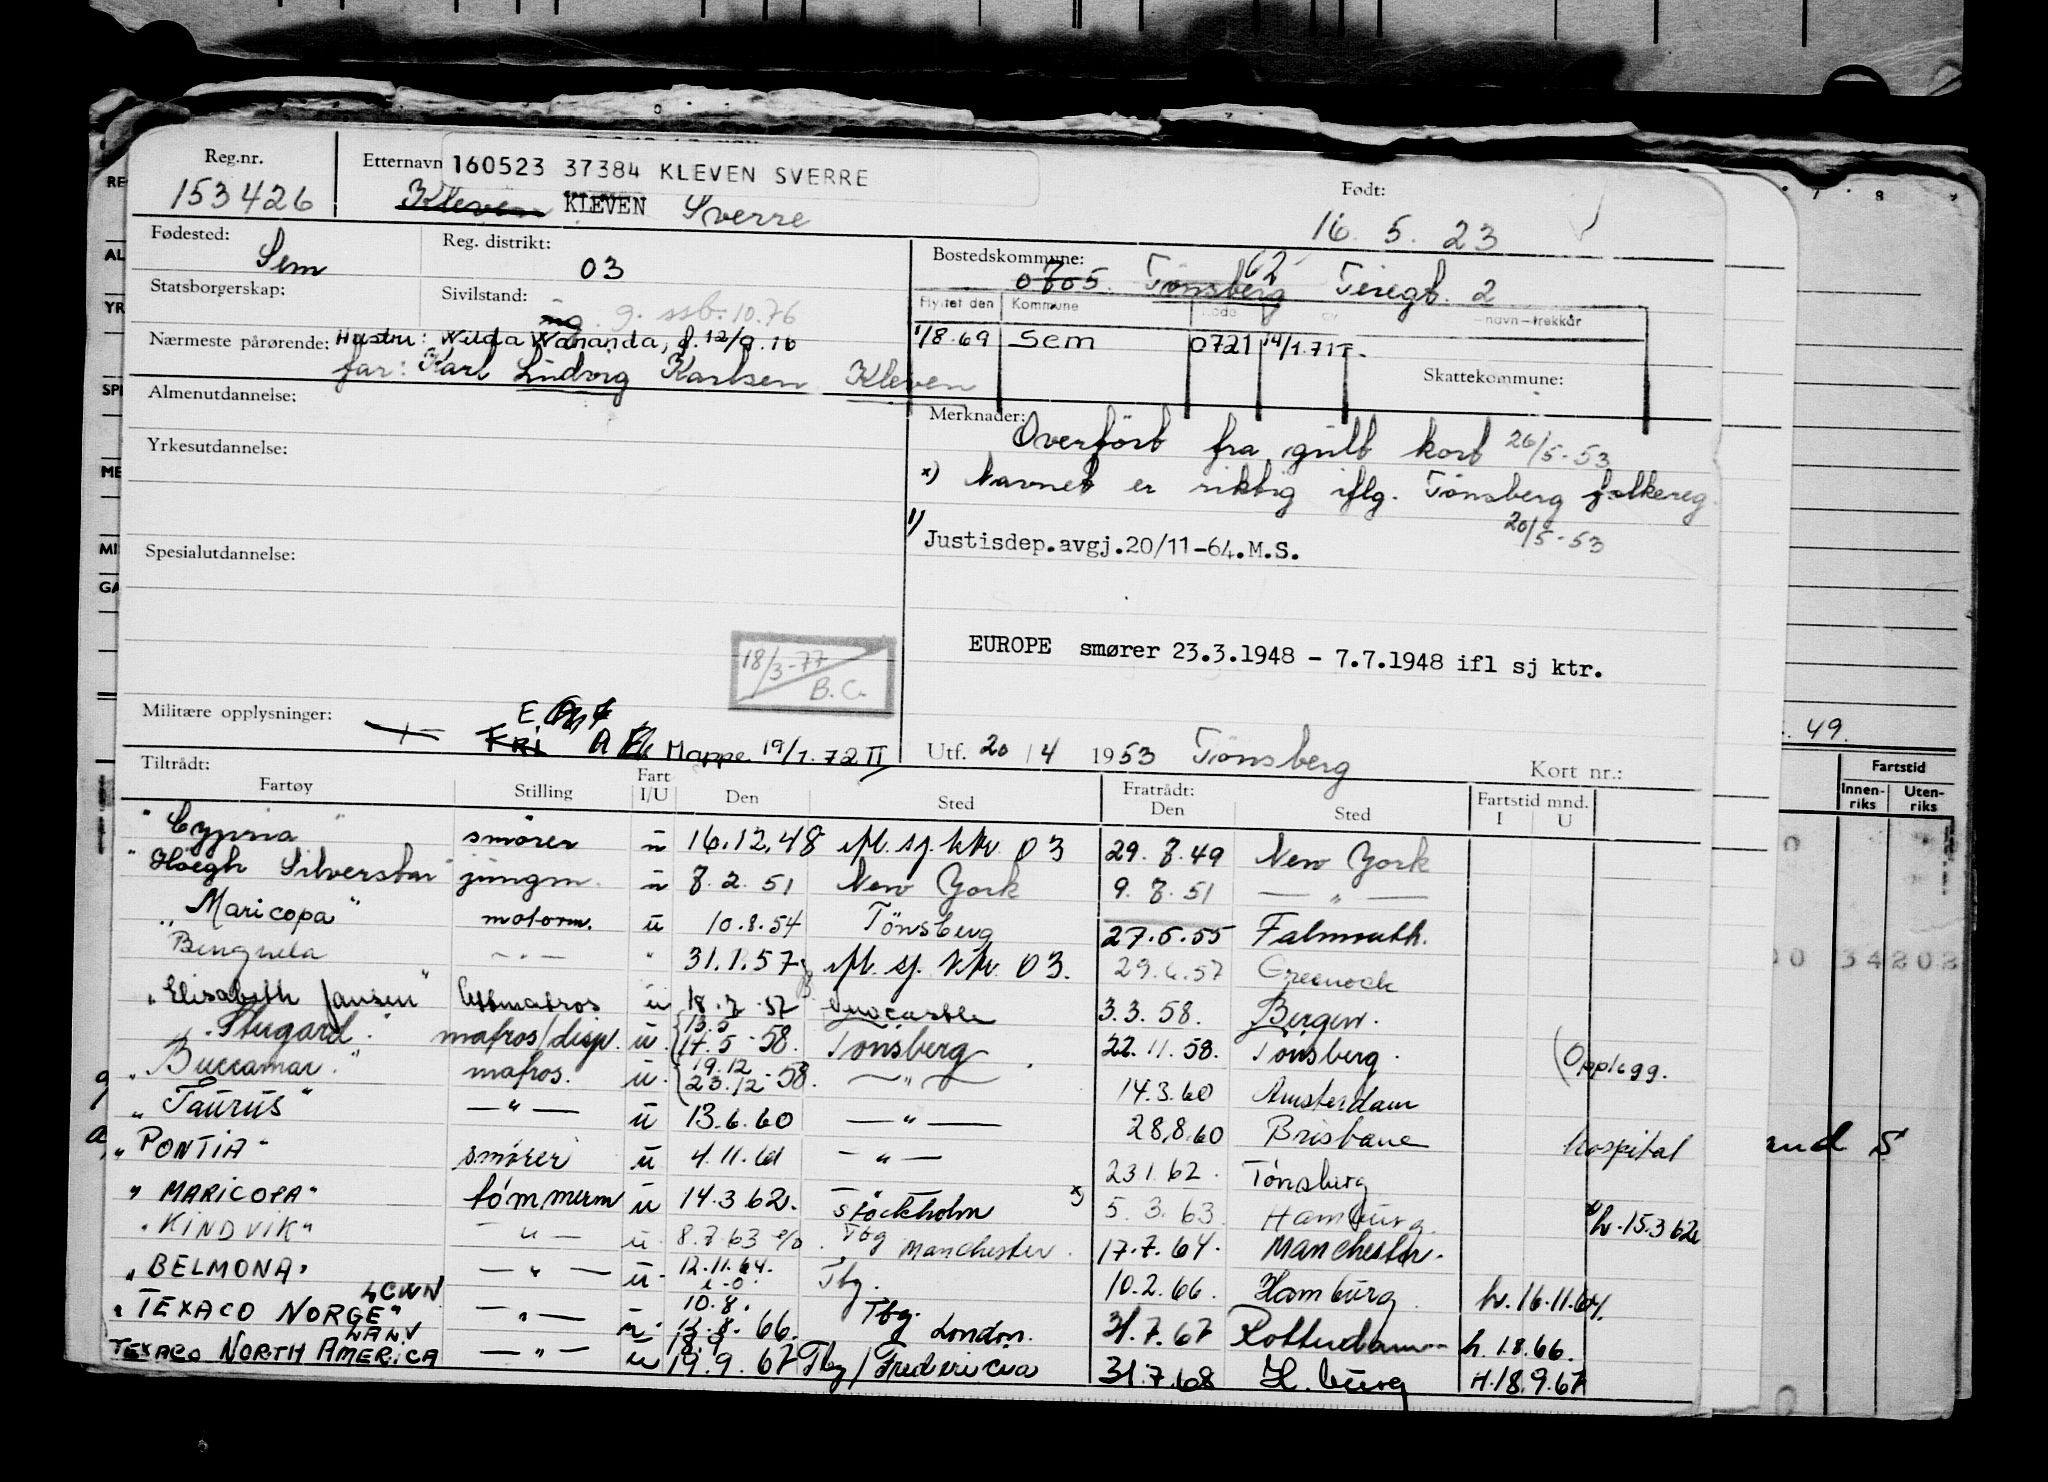 Reg.nr. Etternavn 160523 37384 KLEVEN SVERRE Født:
153426 Kleven KLEVEN Sverre 16. 5. 23
Fødested: Sem Reg. distrikt: 03 Bostedskommune: 0705 Tønsberg 62
Statsborgerskap: Sivilstand: ug. g. ssb. 10.76
Flyttet den Kommune navn-trekkår
Nærmeste pårørende: Hustru: Wananda, f. 12/9.16 1/8.69 Sem 0721 14/1.71
far: Karl Ludvig Karlsen Kleven Skattekommune:
Almenutdannelse: Merknader:
Overført fra gult kort 26/5-53
Yrkesutdannelse: x) Navnet er riktig iflg. Tønsberg folkereg.
20/5-53
Spesialutdannelse: 1) Justisdep.avgj.20/11-64.M.S.
EUROPE smører 23.3.1948 - 7.7.1948 ifl sj ktr.
18/3-77
B.C.
Militære opplysninger: FRI Mappe 19/1.72 II Utf. 20/4 1953 Tønsberg Kort nr.:
Tiltrådt: Fratrådt:
Fartøy Stilling Fart I/U Den Sted Den Sted Fartstid mnd. I U
"Cypria" smører u 16.12.48 ifl. sj. ktr. 03 29.7.49 New York
"Høegh Silverstar" jungm. u 7.2.51 New York 9.7.51 — " —
"Maricopa" motorm. u 10.8.54 Tønsberg 27.5.55 Falmouth.
Benguela — " — " 31.1.57 ifl. sj. ktr. 03. 29.6.57 Greenock
"Elisabeth Jansen" lettmatros u 18.7.57 Newcastle 3.3.58. Bergen.
"Stugard." matros/disp. u. 13.5 17.5-58. Tønsberg 22.11.58. Tønsberg. (Opplegg.
"Buccamar." matros. u. 19.12 23.12-58. — " — 14.3.60 Amsterdam
"Taurus" — " — u 13.6.60 — " — 28.8.60 Brisbane hospital
"PONTIA" smører u 4.11.61 — " — 23.1.62. Tønsberg
"MARICOPA" tømmerm u 14.3.62. Stockholm x) 5.3.63. Hamburg. h.15.3.62
"KINDVIK" — " — u. 8.7.63 Tbg Manchester. 17.7.64. Manchester.
"BELMONA" — " — u. 12.11.64. Tbg. 10.2.66. Hamburg. h.16.11.64.
LCWN
"TEXACO NORGE" — " — u. 10.8. 66. Tbg. London. 31.7.67 Rotterdam h.1.8.66.
LALV
TEXACO NORTH AMERICA — " — u 19.9.67 Tbg/Fredericia 31.7.68 H.burg H.18.9.67
49.
Fartstid
Innenriks Utenriks